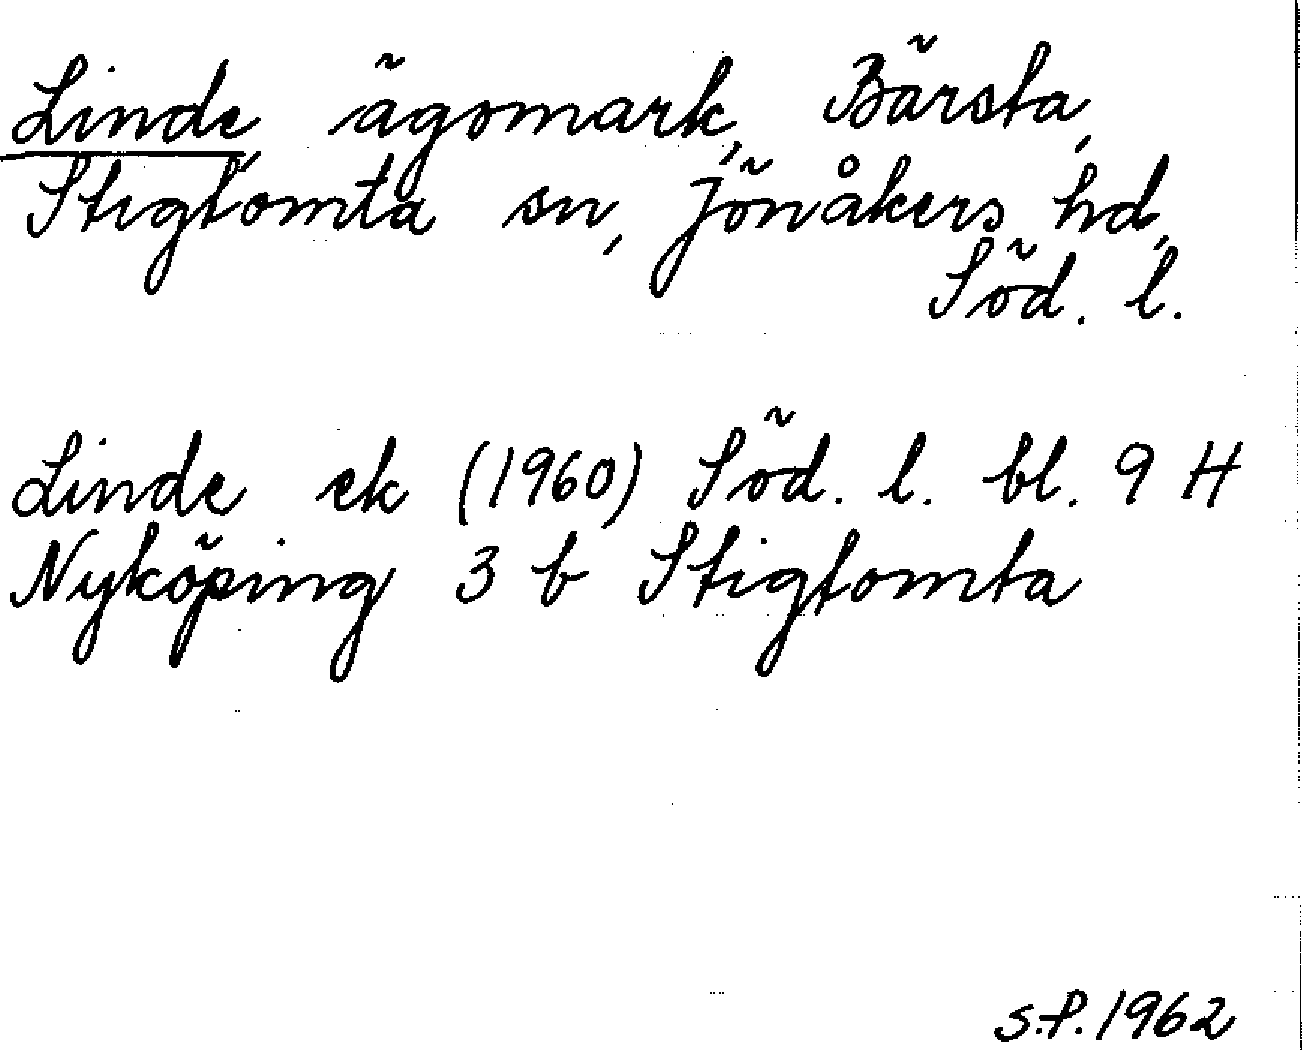 Linde, ägomark, Bärsta,
Stigtomta sn, Jönåkers hd,
Söd. l.
Linde ek (1960) Söd. l. bl. 9 H
Nyköping 3 b Stigtomta
S.P. 1962